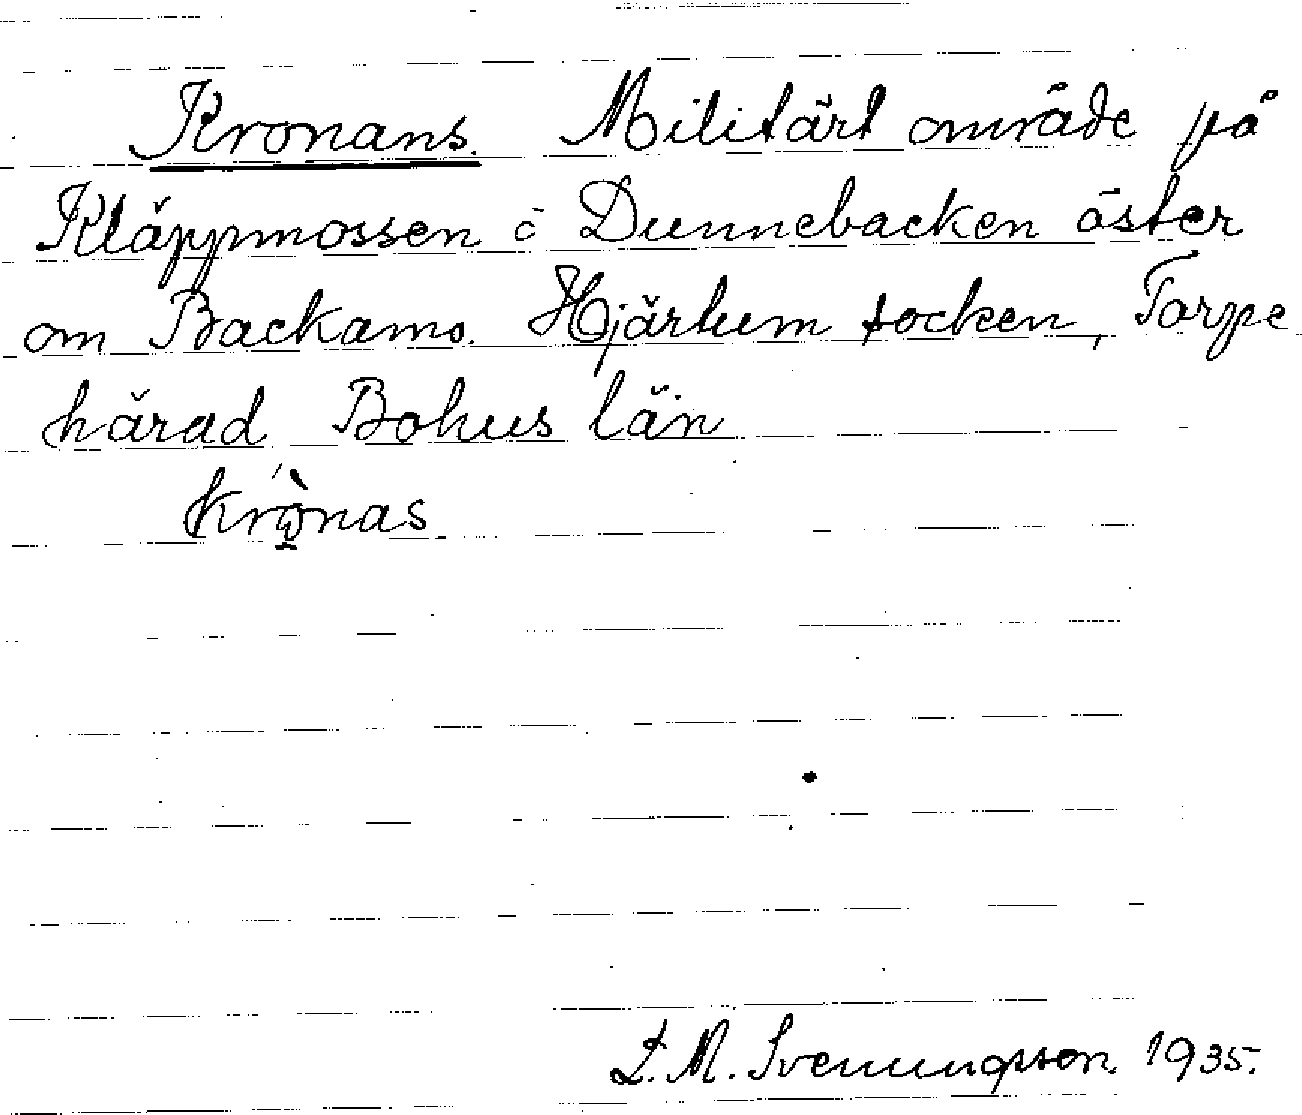 Kronans. Militärt område på
Kläppmossen å Dunnebacken öster
om Backamo. Hjärtum socken, Torpe
härad Bohus län
krònas
L. M. Svenungsson 1935.